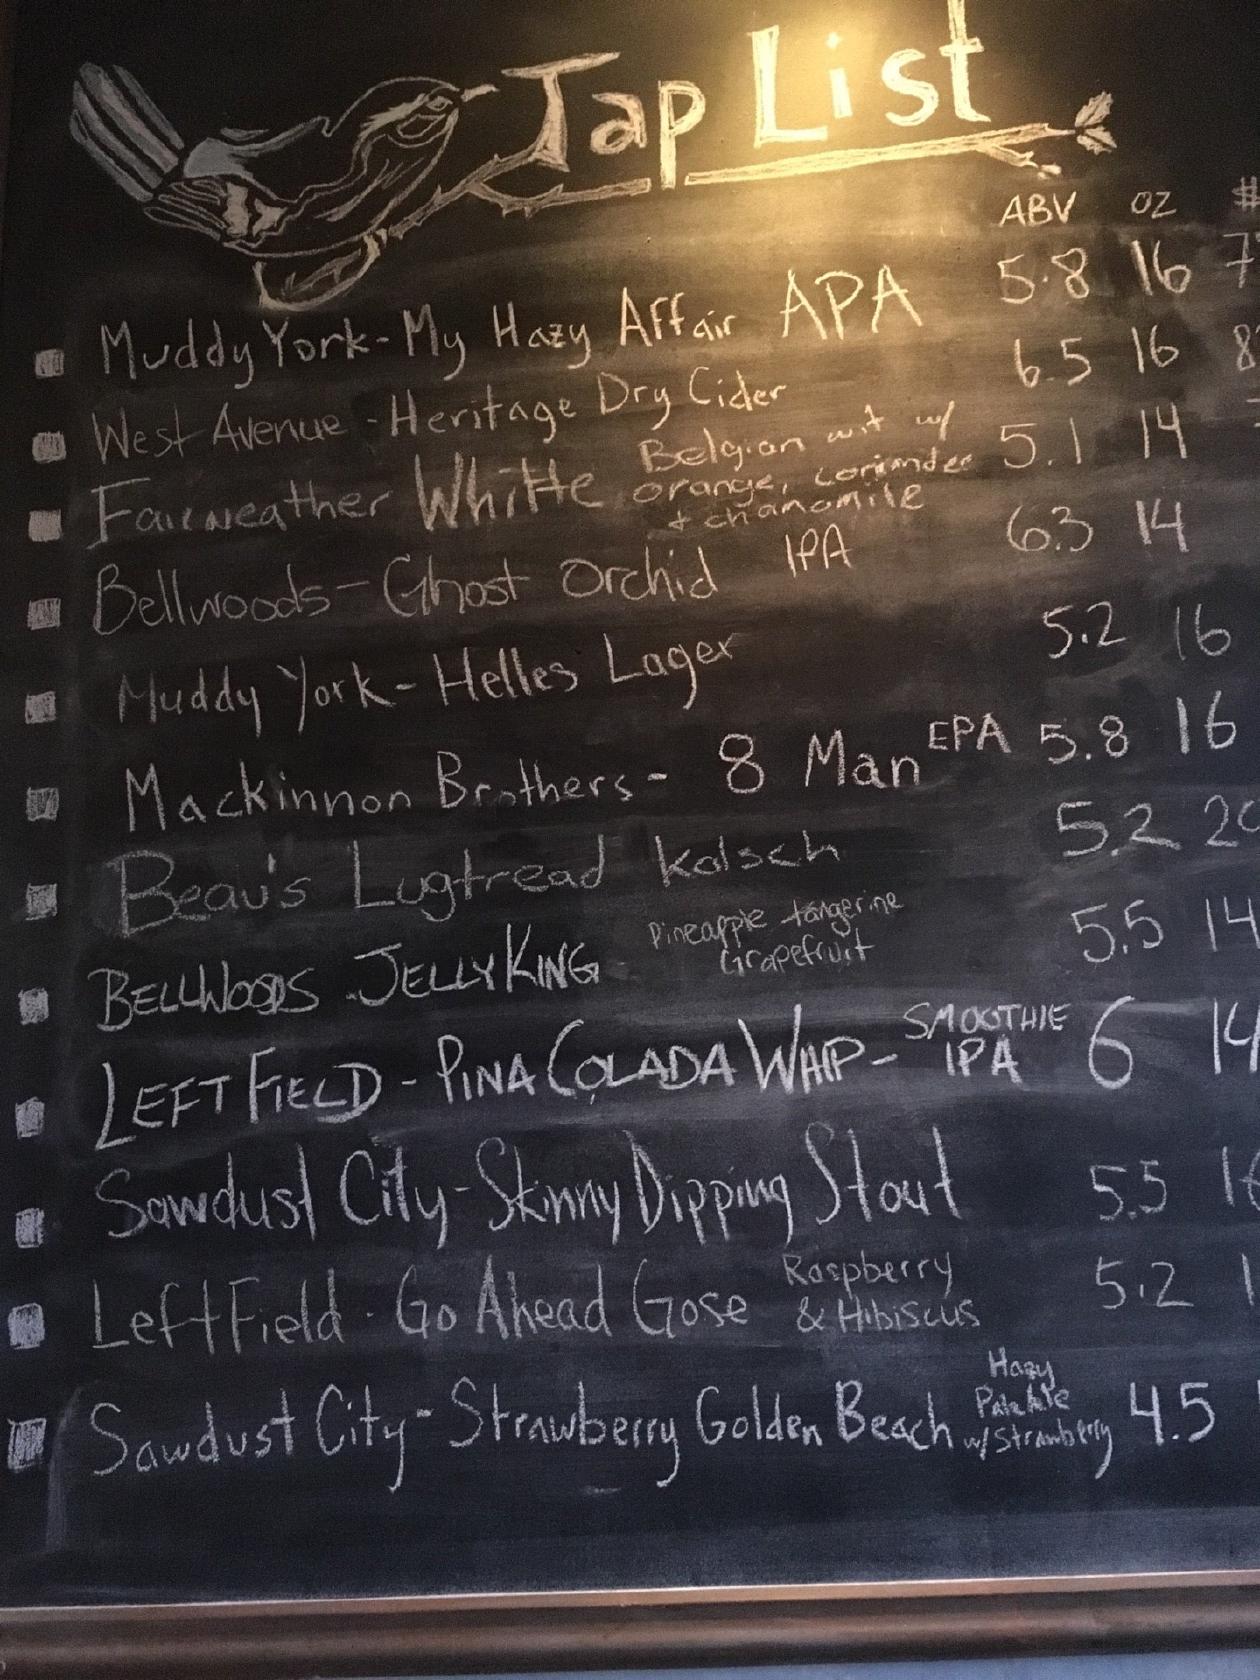 Tap List
ABV OZ #
Muddy York - My Hazy Affair APA 5.8 16 7
West Avenue - Heritage Dry Cider 6.5 16 8
Fairweather Whitte Belgian wit w/ orange, coriander + chamomile 5.1 14
Bellwoods - Ghost Orchid IPA 6.3 14
Muddy York - Helles Lager 5.2 16
Mackinnon Brothers - 8 Man EPA 5.8 16
Beau's Lugtread Kolsch 5.2 20
BELLWOODS JELLY KING Pineapple tangerine Grapefruit 5.5 14
LEFT FIELD - PINA COLADA WHIP - SMOOTHIE IPA 6 14
Sawdust City - Skinny Dipping Stout 5.5
Left Field - Go Ahead Gose Raspberry & Hibiscus 5.2
Sawdust City - Strawberry Golden Beach Hazy Pale Ale w/ Strawberry 4.5